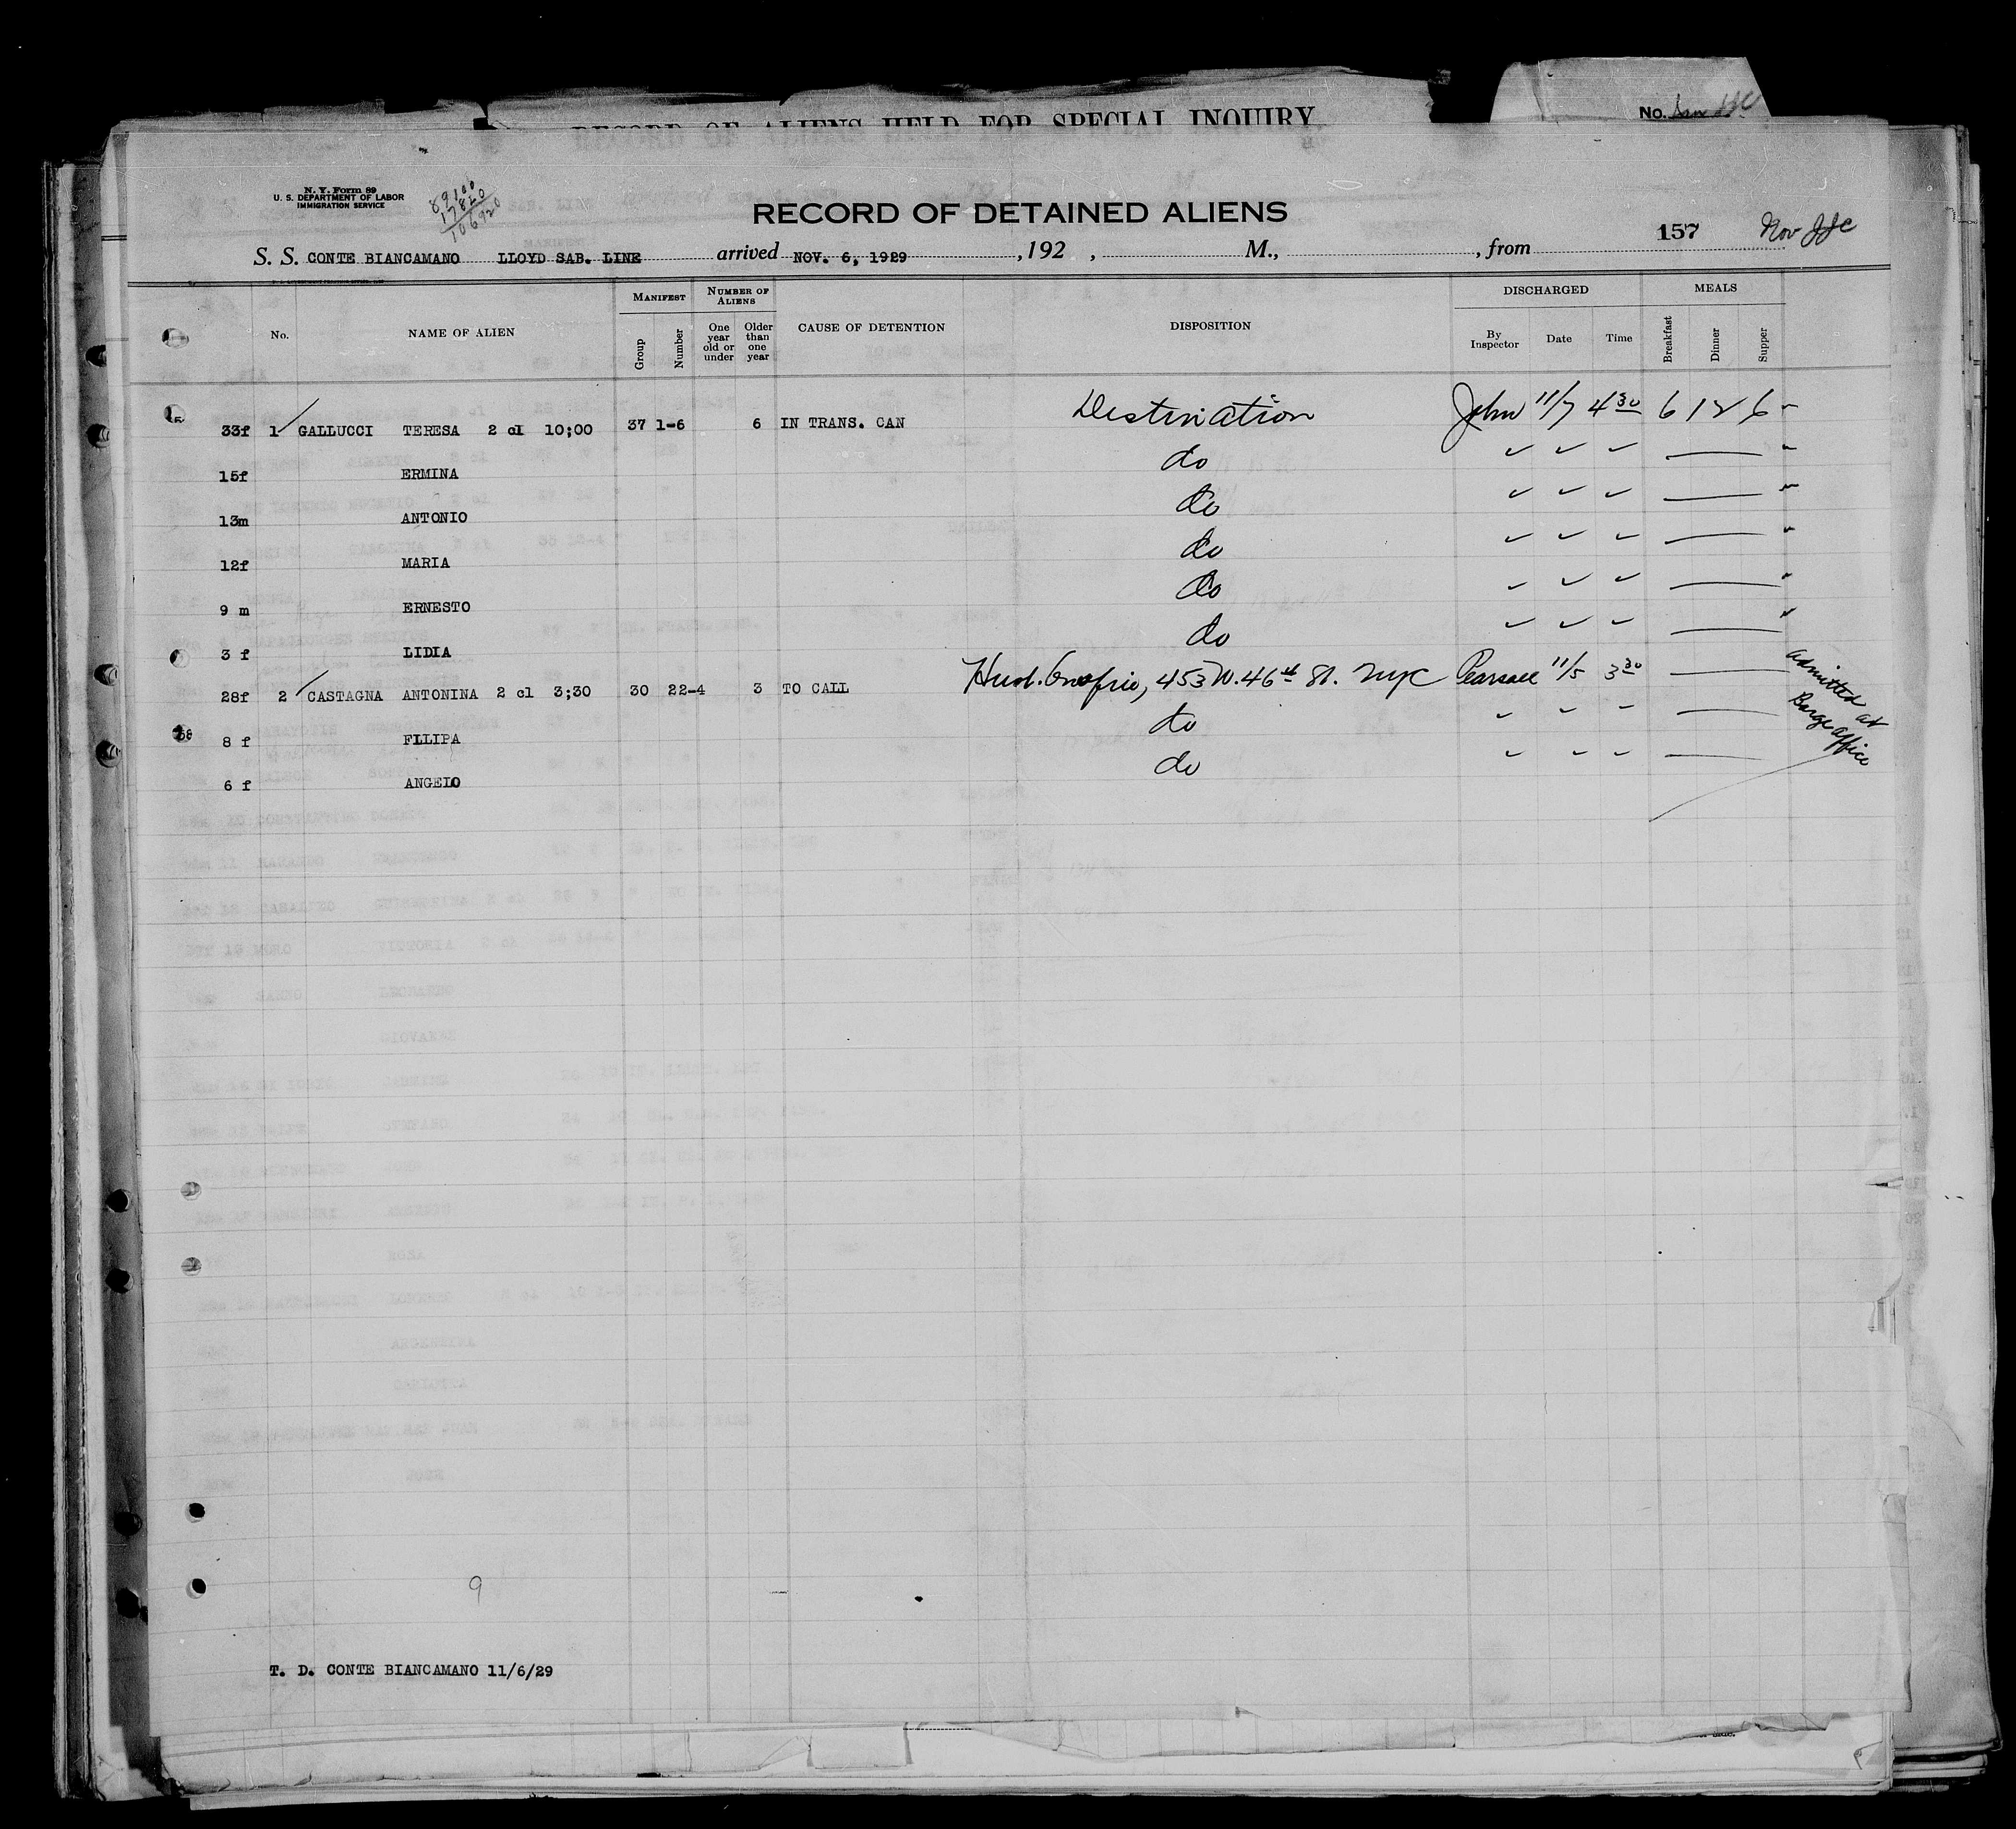 RECORD OF ALIENS HELD FOR SPECIAL INQUIRY
No.
N. Y. Form 89
U. S. DEPARTMENT OF LABOR
IMMIGRATION SERVICE
89100
17820
106920
RECORD OF DETAINED ALIENS
157 Nov
S. S. CONTE BIANCAMANO LLOYD SAB. LINE arrived NOV. 6, 1929, 192 , M., , from
MANIFEST NUMBER OF ALIENS DISCHARGED MEALS
No. NAME OF ALIEN Group Number One year old or under Older than one year CAUSE OF DETENTION DISPOSITION By Inspector Date Time Breakfast Dinner Supper
33f 1 GALLUCCI TERESA 2 cl 10;00 37 1-6 6 IN TRANS. CAN Destination John 11/7 4 30 6 12 6
15f ERMINA do
13m ANTONIO do
12f MARIA do
9 m ERNESTO do
3 f LIDIA do
28f 2 CASTAGNA ANTONINA 2 cl 3;30 30 22-4 3 TO CALL Husb. Onofrio, 453 W. 46th St. NYC Pearsall 11/5 3 30 admitted at Barge office
8 f FLLIPA do
6 f ANGELO do
9
T. D. CONTE BIANCAMANO 11/6/29